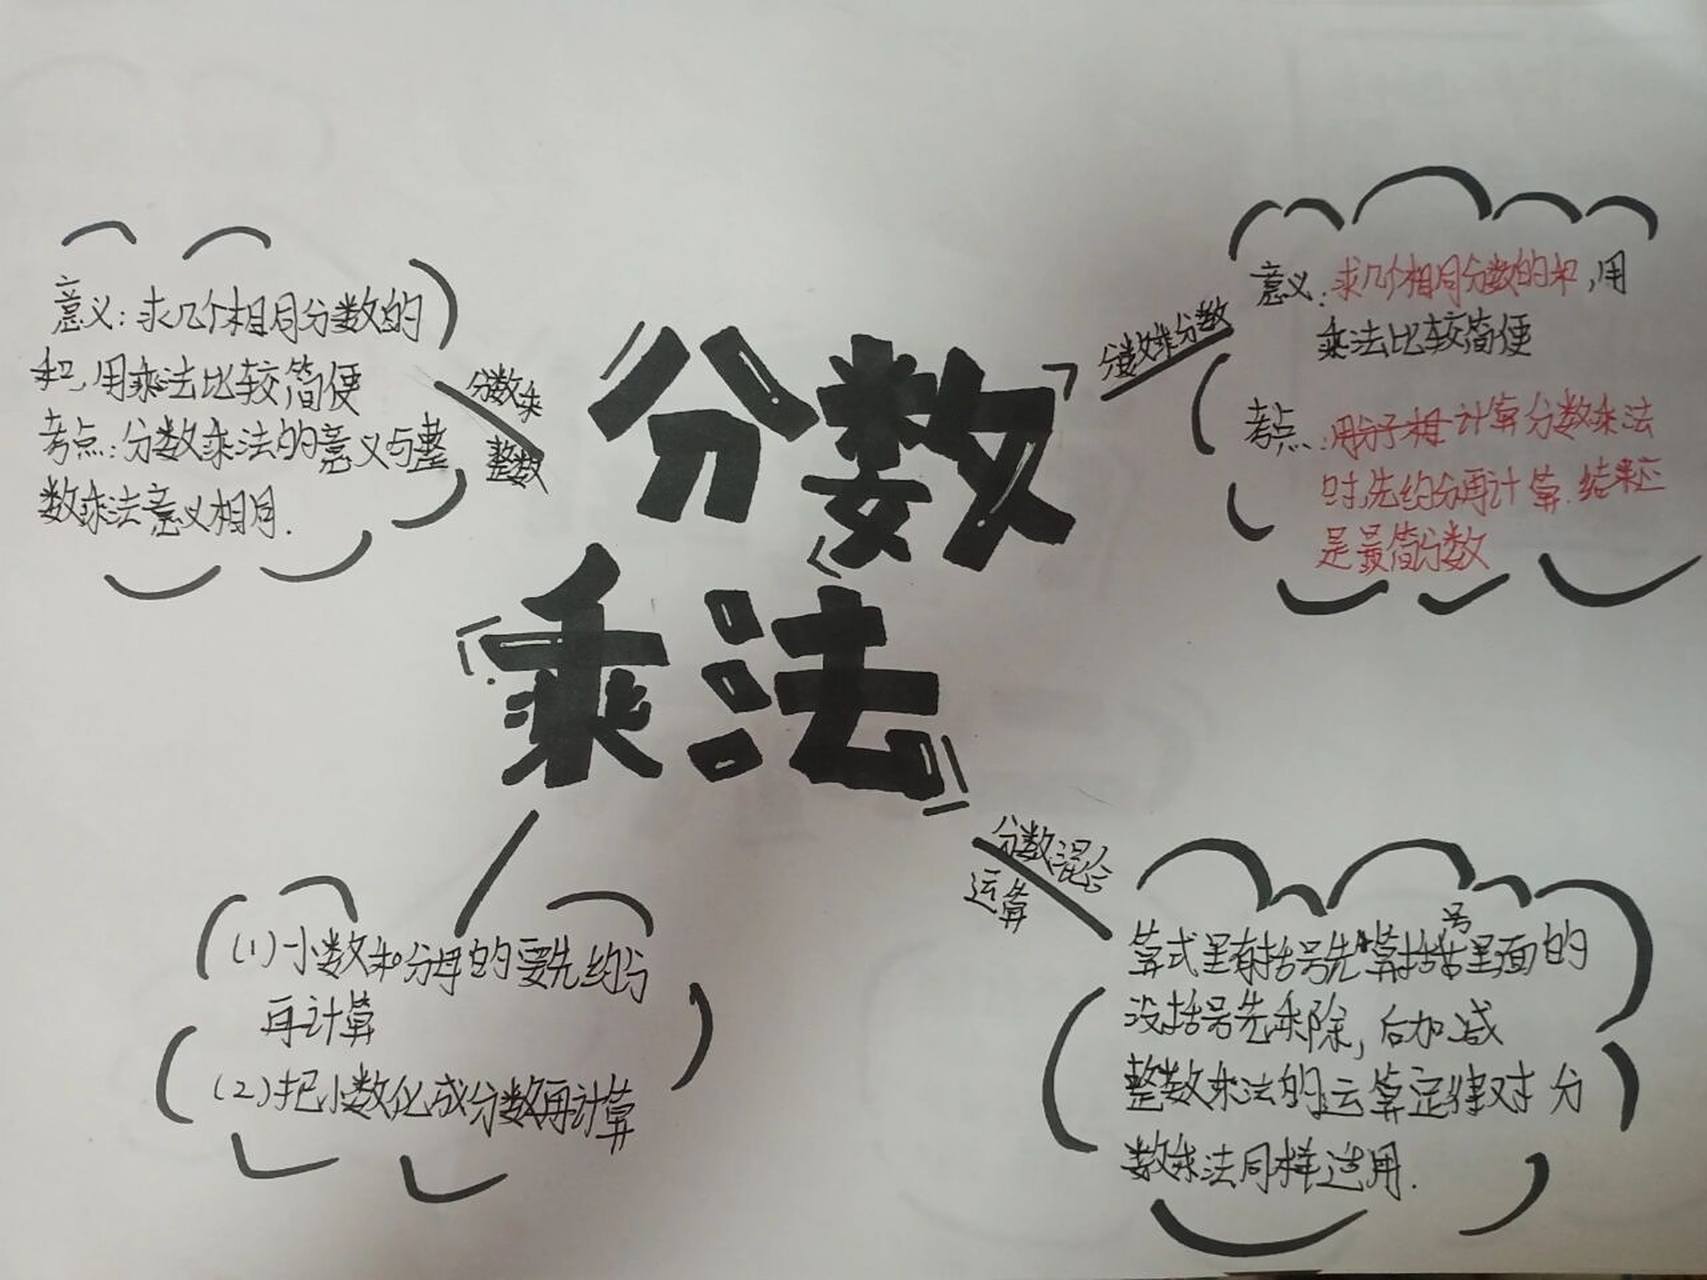 分数
乘法
分数乘
整数
意义:求几个相同分数的
和,用乘法比较简便
考点:分数乘法的意义与整
数乘法意义相同.
分数乘分数
意义:求几个相同分数的和,用
乘法比较简便
考点:用分子相计算分数乘法
时,先约分再计算.结果应
是最简分数
(1)小数和分母的要先约分
再计算
(2)把小数化成分数再计算
分数混合
运算
算式里有括号先算括号里面的
没括号先乘除,后加减
整数乘法的运算定律对于分
数乘法同样适用.